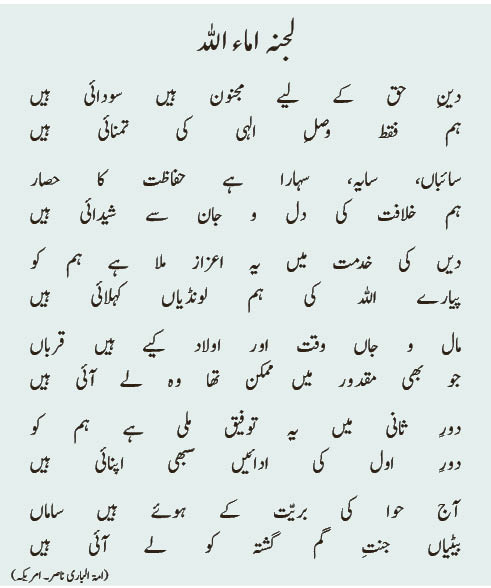 لجنہ اماء اللہ
دینِ حق کے لیے مجنون ہیں سودائی ہیں
ہم فقط وصلِ الٰہی کی تمنائی ہیں
سائباں، سایہ، سہارا ہے حفاظت کا حصار
ہم خلافت کی دل و جان سے شیدائی ہیں
دیں کی خدمت میں یہ اعزاز ملا ہے ہم کو
پیارے اللہ کی ہم لونڈیاں کہلائی ہیں
مال و جاں وقت اور اولاد کیے ہیں قرباں
جو بھی مقدور میں ممکن تھا وہ لے آئی ہیں
دورِ ثانی میں یہ توفیق ملی ہے ہم کو
دورِ اول کی ادائیں سبھی اپنائی ہیں
آج حوا کی بریّت کے ہوئے ہیں ساماں
بیٹیاں جنتِ گم گشتہ کو لے آئی ہیں
(امۃ الباری ناصر۔ امریکہ)